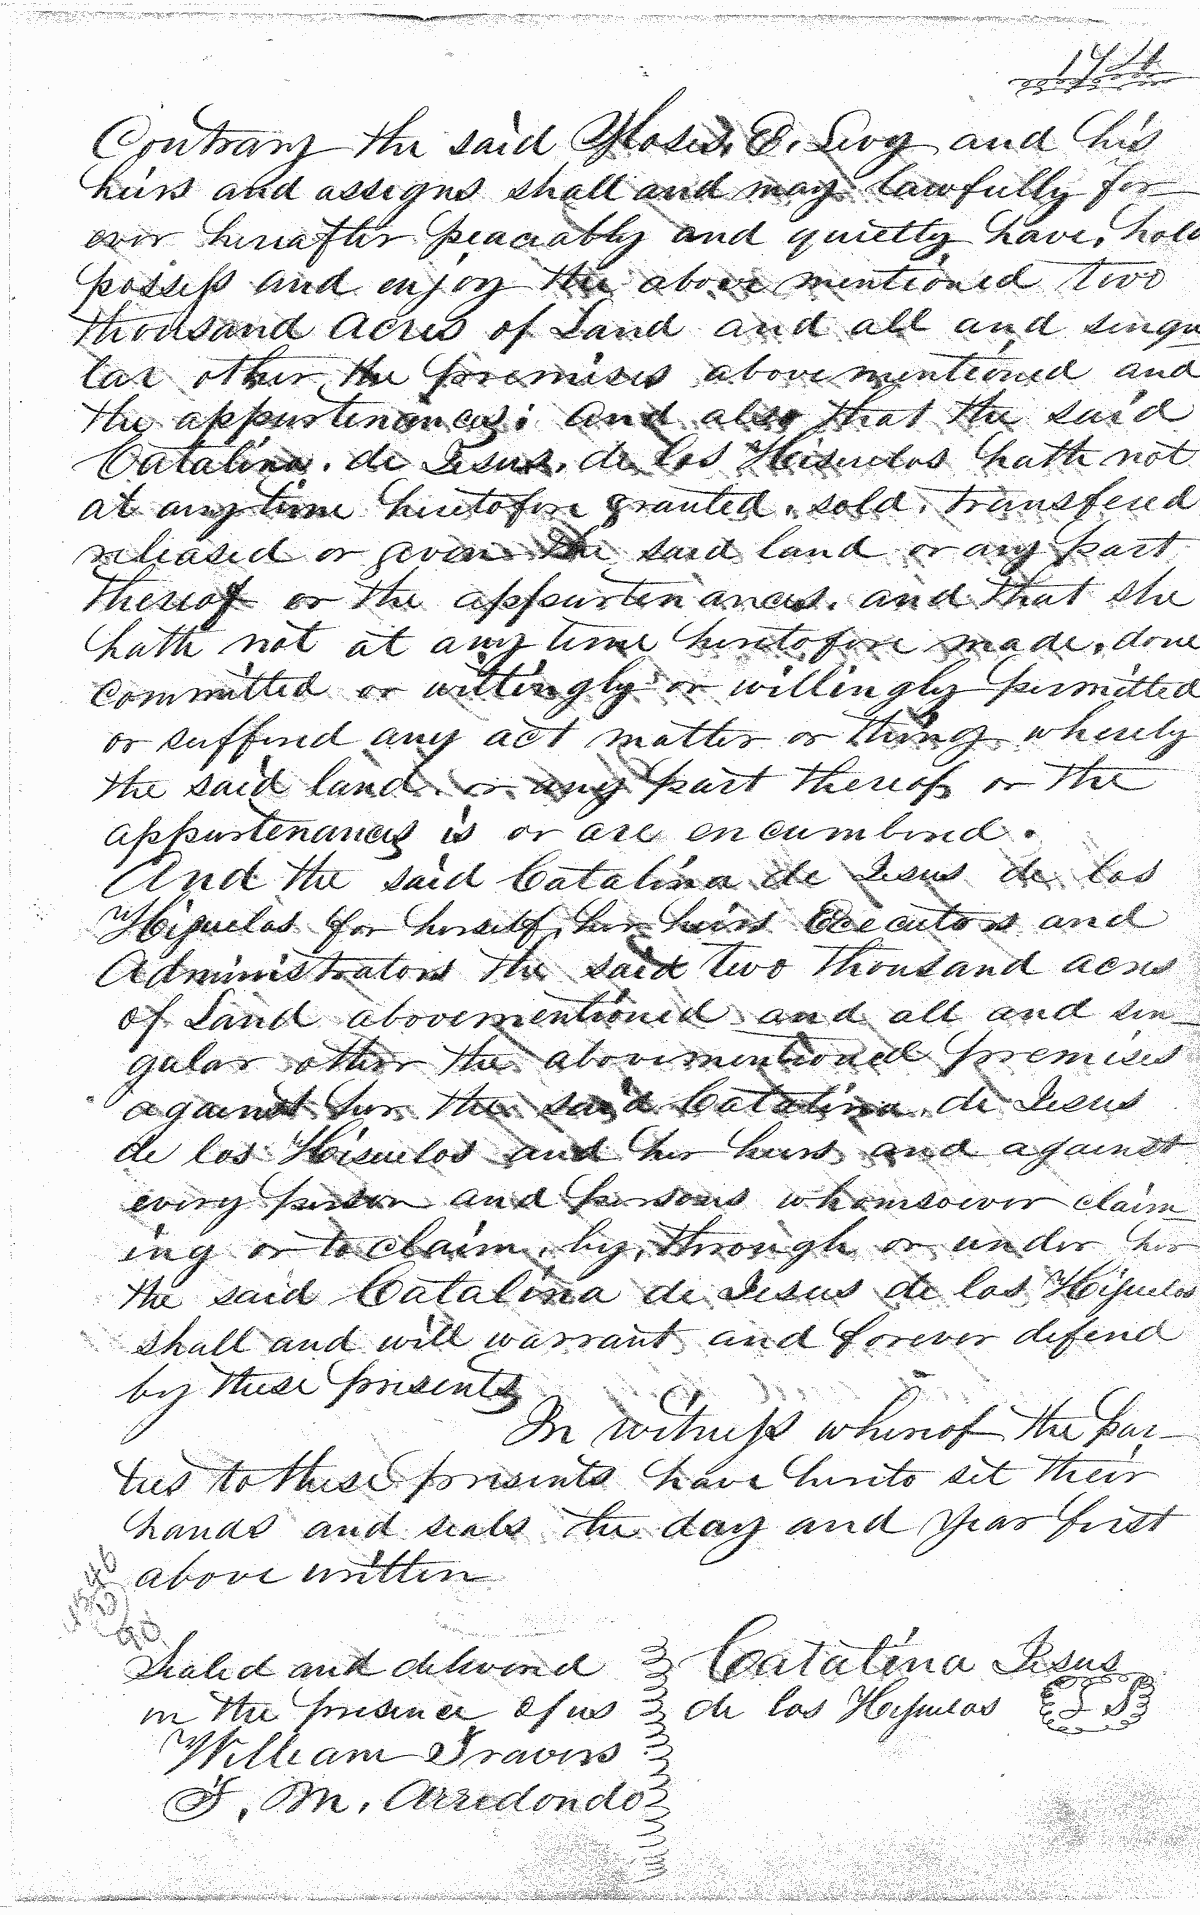 Contrary the said Moses. E. Levy and his
heirs and assigns shall and may lawfully for
ever hereafter peaceably and quietly have, hold
possess and enjoy the above mentioned two
thousand acres of Land and all and singu
lar other the premises above mentioned and
the appurtenances; and also that the said
Catalina. de Jesus. de los Hisuelos hath not
at any time heretofore granted. sold. transfered
released or given the said land or any part
thereof or the appurtenances. and that she
hath not at any time heretofore made, done
committed or wittingly or willingly permitted
or suffered any act matter or thing whereby
the said land. or any part thereof or the
appurtenances is or are encumbered.
And the said Catalina de Jesus de los
Hijuelos for herself, her heirs Executors and
Administrators the said two thousand acres
of Land abovementioned and all and sin
gular other the abovementioned premises
against her the said Catalina. de Jesus
de los Hisuelos and her heirs and against
every person and persons whomsoever claim
ing or to claim, by, through or under her
the said Catalina de Jesus de los Hijuelos
shall and will warrant and forever defend
by these presents
In witness whereof the par
ties to these presents have hereto set their
hands and seals the day and year first
above written
Sealed and delivered
in the presence of us
William Travers
F. M. Arredondo
Catalina Jesus
de los Hijuelos L S